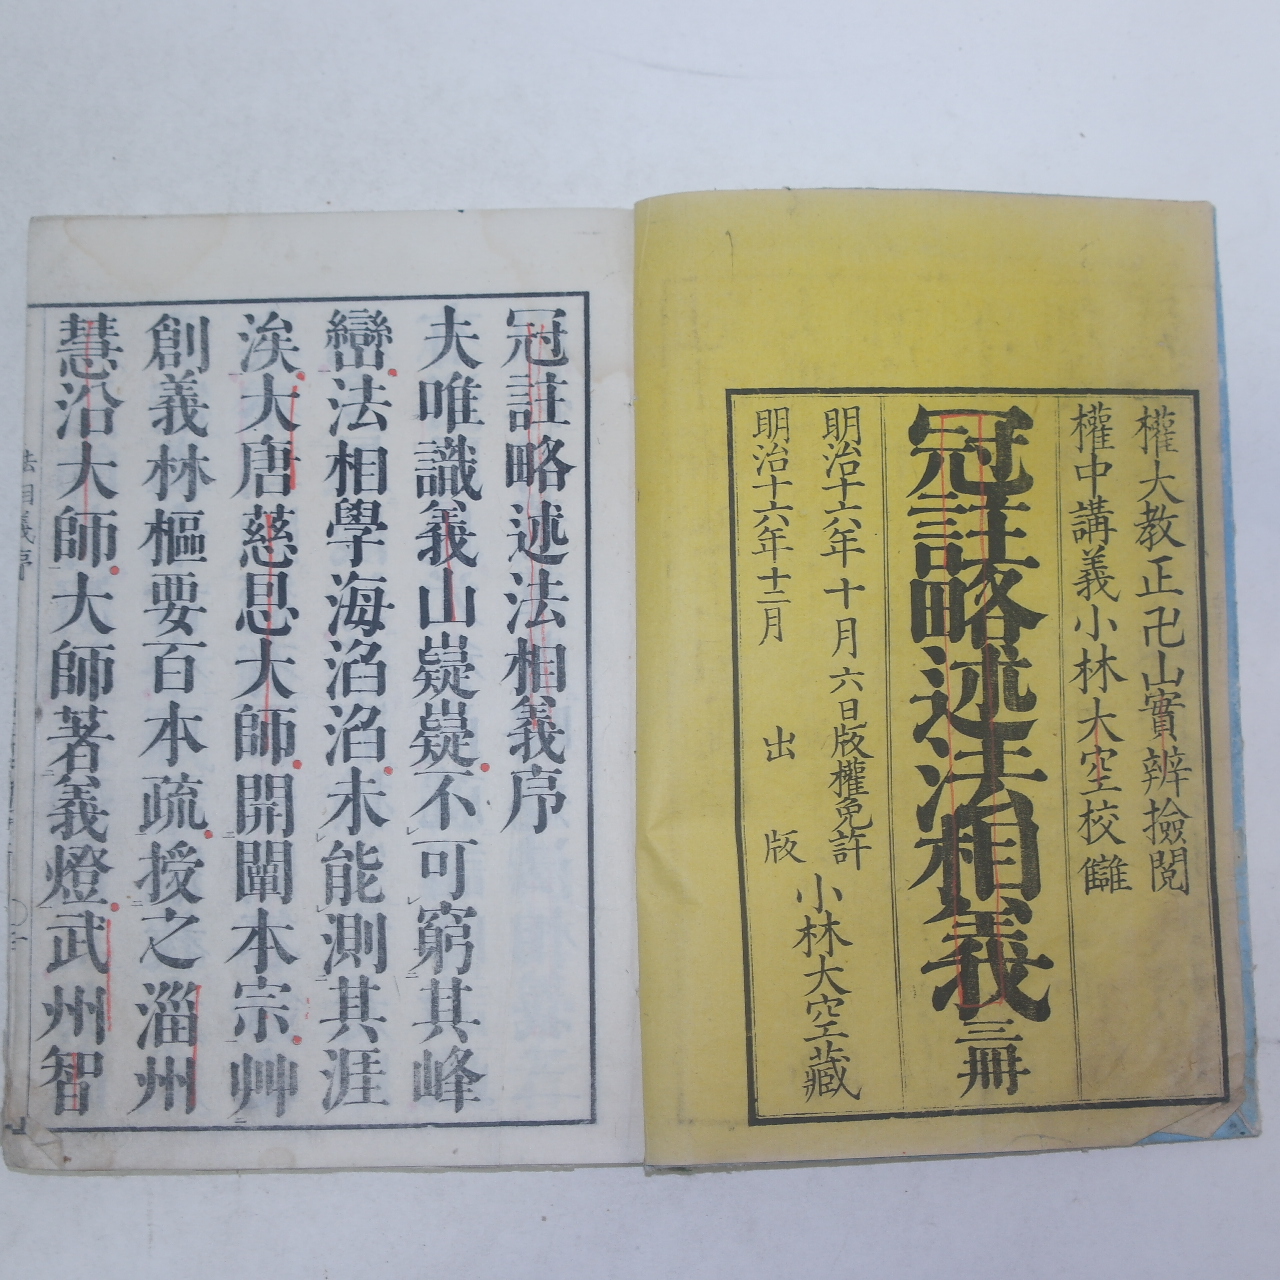 權大教正卍山實辨撿閱
權中講義小林大空校讎
冠註略述法相義三冊
明治十六年十月六日版權免許
明治十六年十二月 出版
小林大空藏
冠註略述法相義序
夫唯識義山嶷嶷不可窮其峰
巒法相學海滔滔未能測其涯
涘大唐慈恩大師開闡本宗艸
創義林樞要百本疏授之淄州
慧沿大師大師著義燈武州智
法相義序